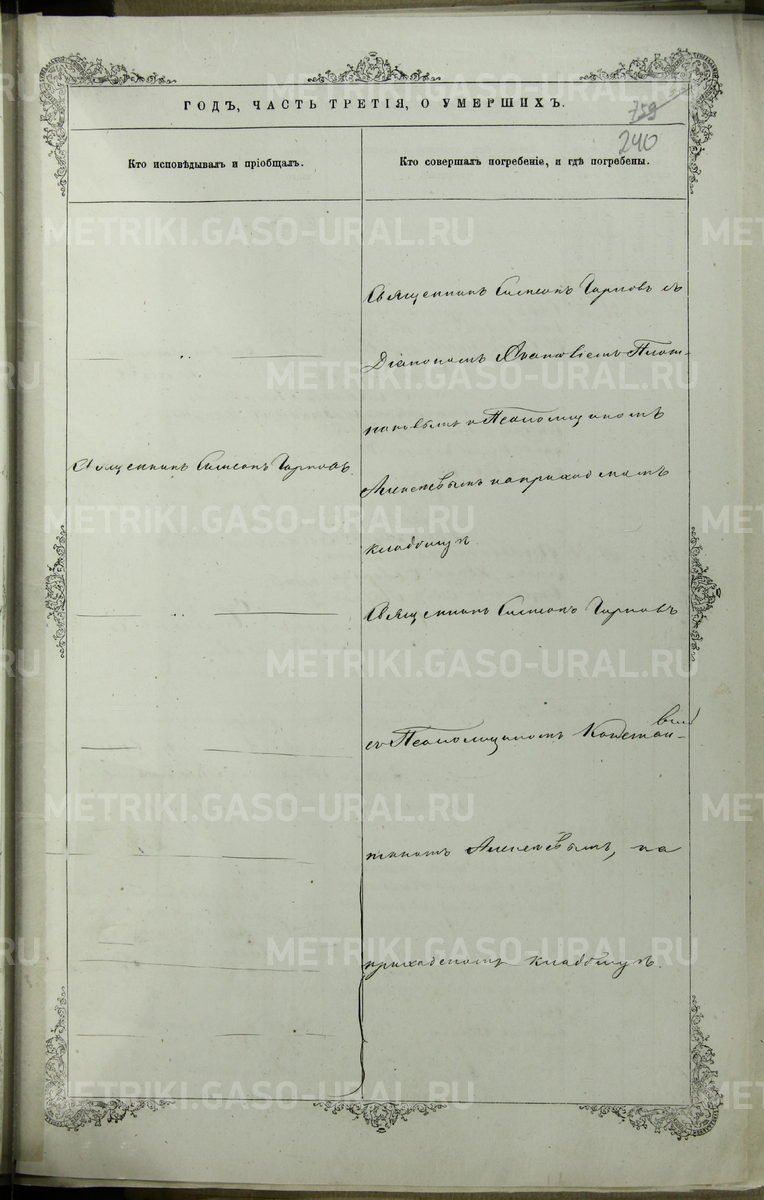 ГОДЪ, ЧАСТЬ ТРЕТІЯ, О УМЕРШИХЪ.
759
240
Кто исповѣдывалъ и пріобщалъ.
Кто совершалъ погребеніе, и гдѣ погребены.
Священникъ Симеонъ
Священникъ Симеонъ съ
Діакономъ Плот-
никовымъ и Псаломщикомъ
Алексѣевымъ на приходскомъ
кладбищѣ
Священникъ Симеонъ
съ Псаломщикомъ Констан-
тиномъ Алексѣевымъ, на
приходскомъ кладбищѣ.
METRIKI.GASO-URAL.RU